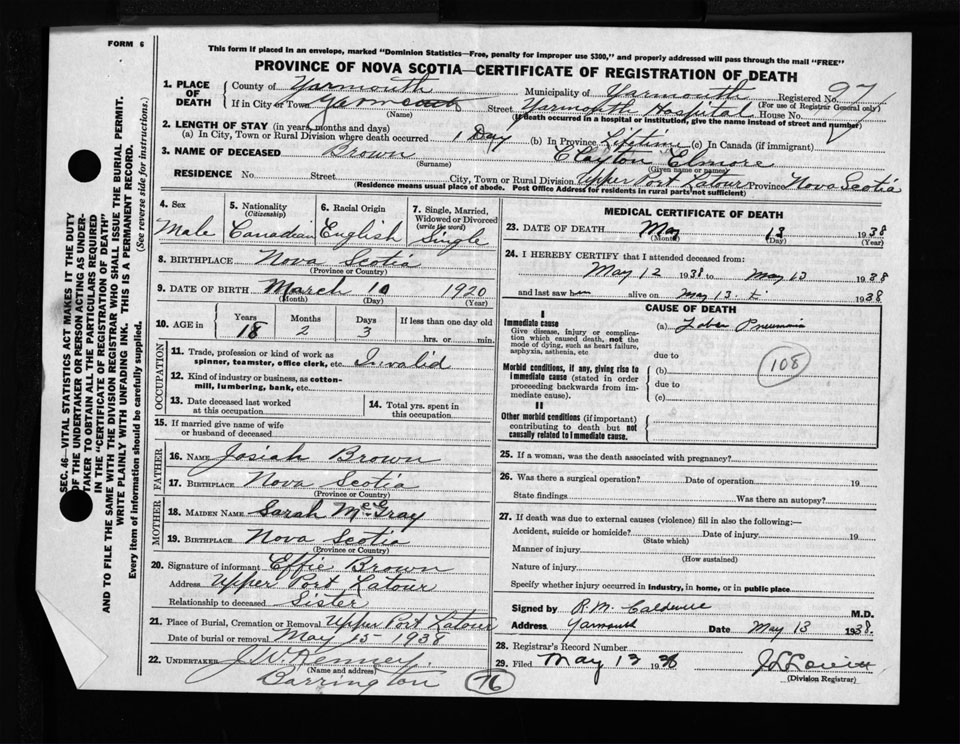 FORM 6
This form if placed in an envelope, marked "Dominion Statistics—Free, penalty for improper use $300," and properly addressed will pass through the mail "FREE"
PROVINCE OF NOVA SCOTIA—CERTIFICATE OF REGISTRATION OF DEATH
1. PLACE OF DEATH County of Yarmouth Municipality of Yarmouth Registered No. 97
(For use of Registrar General only)
If in City or Town Yarmouth Street Yarmouth Hospital House No.
(Name) (If death occurred in a hospital or institution, give the name instead of street and number)
2. LENGTH OF STAY (in years, months and days)
(a) In City, Town or Rural Division where death occurred 1 Day (b) In Province Lifetime (c) In Canada (if immigrant)
3. NAME OF DECEASED Brown Clayton Elmore
(Surname) (Given name or names)
RESIDENCE No. Street City, Town or Rural Division Upper Port Latour Province Nova Scotia
(Residence means usual place of abode. Post Office Address for residents in rural parts not sufficient)
4. Sex Male
5. Nationality (Citizenship) Canadian
6. Racial Origin English
7. Single, Married, Widowed or Divorced (write the word) Single
8. BIRTHPLACE Nova Scotia
(Province or Country)
9. DATE OF BIRTH March 10 1920
(Month) (Day) (Year)
10. AGE in Years Months Days If less than one day old
18 2 3 hrs. or min.
OCCUPATION
11. Trade, profession or kind of work as spinner, teamster, office clerk, etc. Invalid
12. Kind of industry or business, as cotton-mill, lumbering, bank, etc.
13. Date deceased last worked at this occupation
14. Total yrs. spent in this occupation
15. If married give name of wife or husband of deceased
FATHER
16. NAME Josiah Brown
17. BIRTHPLACE Nova Scotia
(Province or Country)
MOTHER
18. MAIDEN NAME Sarah McGray
19. BIRTHPLACE Nova Scotia
(Province or Country)
20. Signature of informant Effie Brown
Address Upper Port Latour
Relationship to deceased Sister
21. Place of Burial, Cremation or Removal Upper Port Latour
Date of burial or removal May 15 1938
22. UNDERTAKER J. W. Kenney
(Name and address)
Barrington
76
MEDICAL CERTIFICATE OF DEATH
23. DATE OF DEATH May 13 1938
(Month) (Day) (Year)
24. I HEREBY CERTIFY that I attended deceased from:
May 12 1938 to May 13 1938
and last saw him alive on May 13 1938
CAUSE OF DEATH
I
Immediate cause (a) Lobar Pneumonia
Give disease, injury or complication which caused death, not the mode of dying, such as heart failure, asphyxia, asthenia, etc
due to
108
Morbid conditions, if any, giving rise to immediate cause (stated in order proceeding backwards from immediate cause).
(b)
due to
(c)
II
Other morbid conditions (if important) contributing to death but not causally related to immediate cause.
25. If a woman, was the death associated with pregnancy?
26. Was there a surgical operation? Date of operation 19
State findings Was there an autopsy?
27. If death was due to external causes (violence) fill in also the following:—
Accident, suicide or homicide? Date of injury 19
(State which)
Manner of injury
(How sustained)
Nature of injury
Specify whether injury occurred in industry, in home, or in public place
Signed by R. M. Caldwell M.D.
Address Yarmouth Date May 13 1938.
28. Registrar's Record Number
29. Filed May 13 1938
(Division Registrar)
SEC. 46—VITAL STATISTICS ACT MAKES IT THE DUTY
OF THE UNDERTAKER OR PERSON ACTING AS UNDER-
TAKER TO OBTAIN ALL THE PARTICULARS REQUIRED
IN THE "CERTIFICATE OF REGISTRATION OF DEATH"
AND TO FILE THE SAME WITH THE DIVISION REGISTRAR WHO SHALL ISSUE THE BURIAL PERMIT.
WRITE PLAINLY WITH UNFADING INK. THIS IS A PERMANENT RECORD.
Every item of information should be carefully supplied. (See reverse side for instructions.)